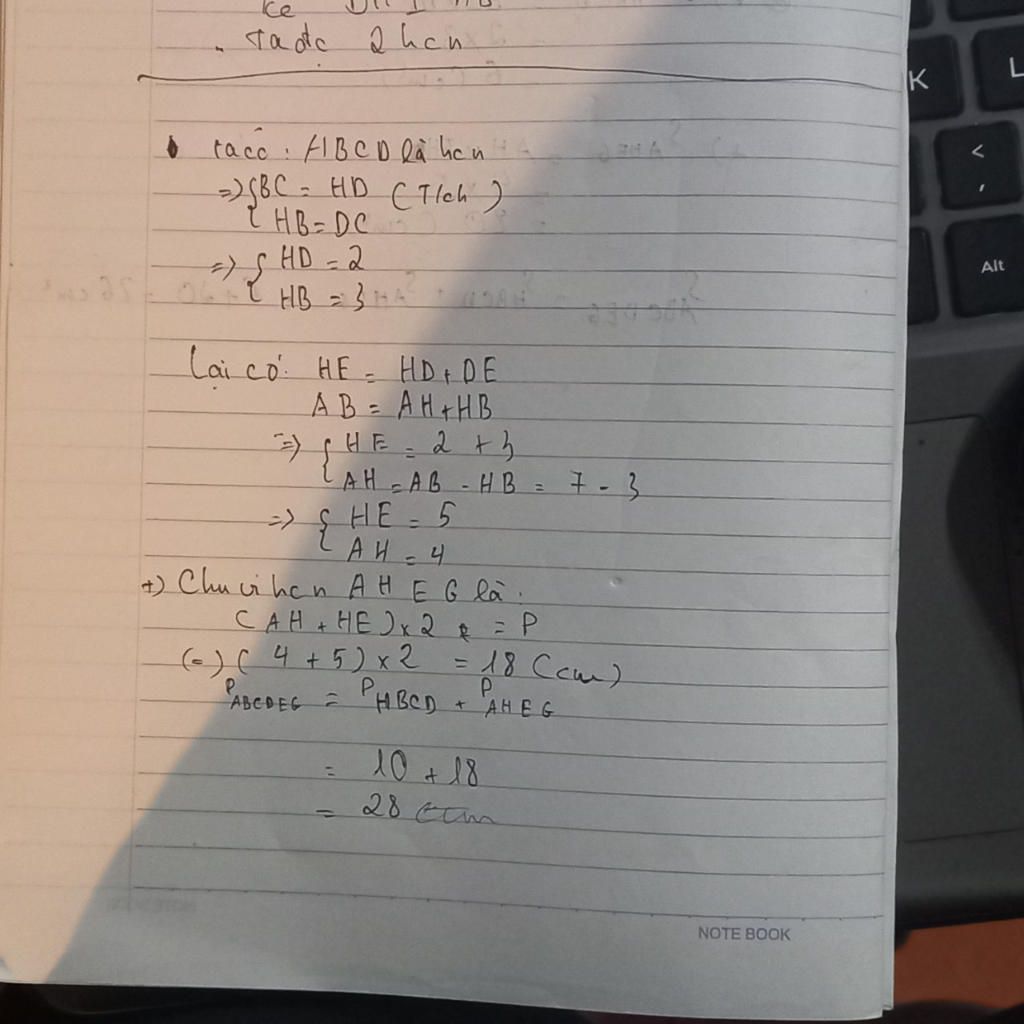 kẻ DH ⊥ AB
. Ta đc 2 hcn
K
L
<
,
Alt
• Ta có : HBCD là hcn
=> { BC = HD (T/ch)
{ HB = DC
=> { HD = 2
{ HB = 3
Lại có: HE = HD + DE
AB = AH + HB
=> { HE = 2 + 3
{ AH = AB - HB = 7 - 3
=> { HE = 5
{ AH = 4
+) Chu vi hcn AHEG là:
(AH + HE) x 2 = P
(=) (4 + 5) x 2 = 18 (cm)
P ABCDEG = P HBCD + P AHEG
= 10 + 18
= 28 cm
NOTE BOOK